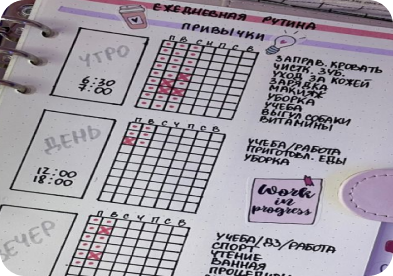 ЕЖЕДНЕВНАЯ РУТИНА
ПРИВЫЧКИ
УТРО
6:30
7:00
П В С Ч П С В
ЗАПРАВ. КРОВАТЬ
ЧИСТК. ЗУБ.
УХОД ЗА КОЖЕЙ
ЗАРЯДКА
МАКИЯЖ
УБОРКА
УЧЕБА
ВЫГУЛ СОБАКИ
ВИТАМИНЫ
ДЕНЬ
12:00
18:00
П В С Ч П С В
УЧЕБА/РАБОТА
ПРИГОТОВЛ. ЕДЫ
УБОРКА
Work
in
progress
ВЕЧЕР
П В С Ч П С В
УЧЕБА/ДЗ/РАБОТА
СПОРТ
ЧТЕНИЕ
ВАННАЯ